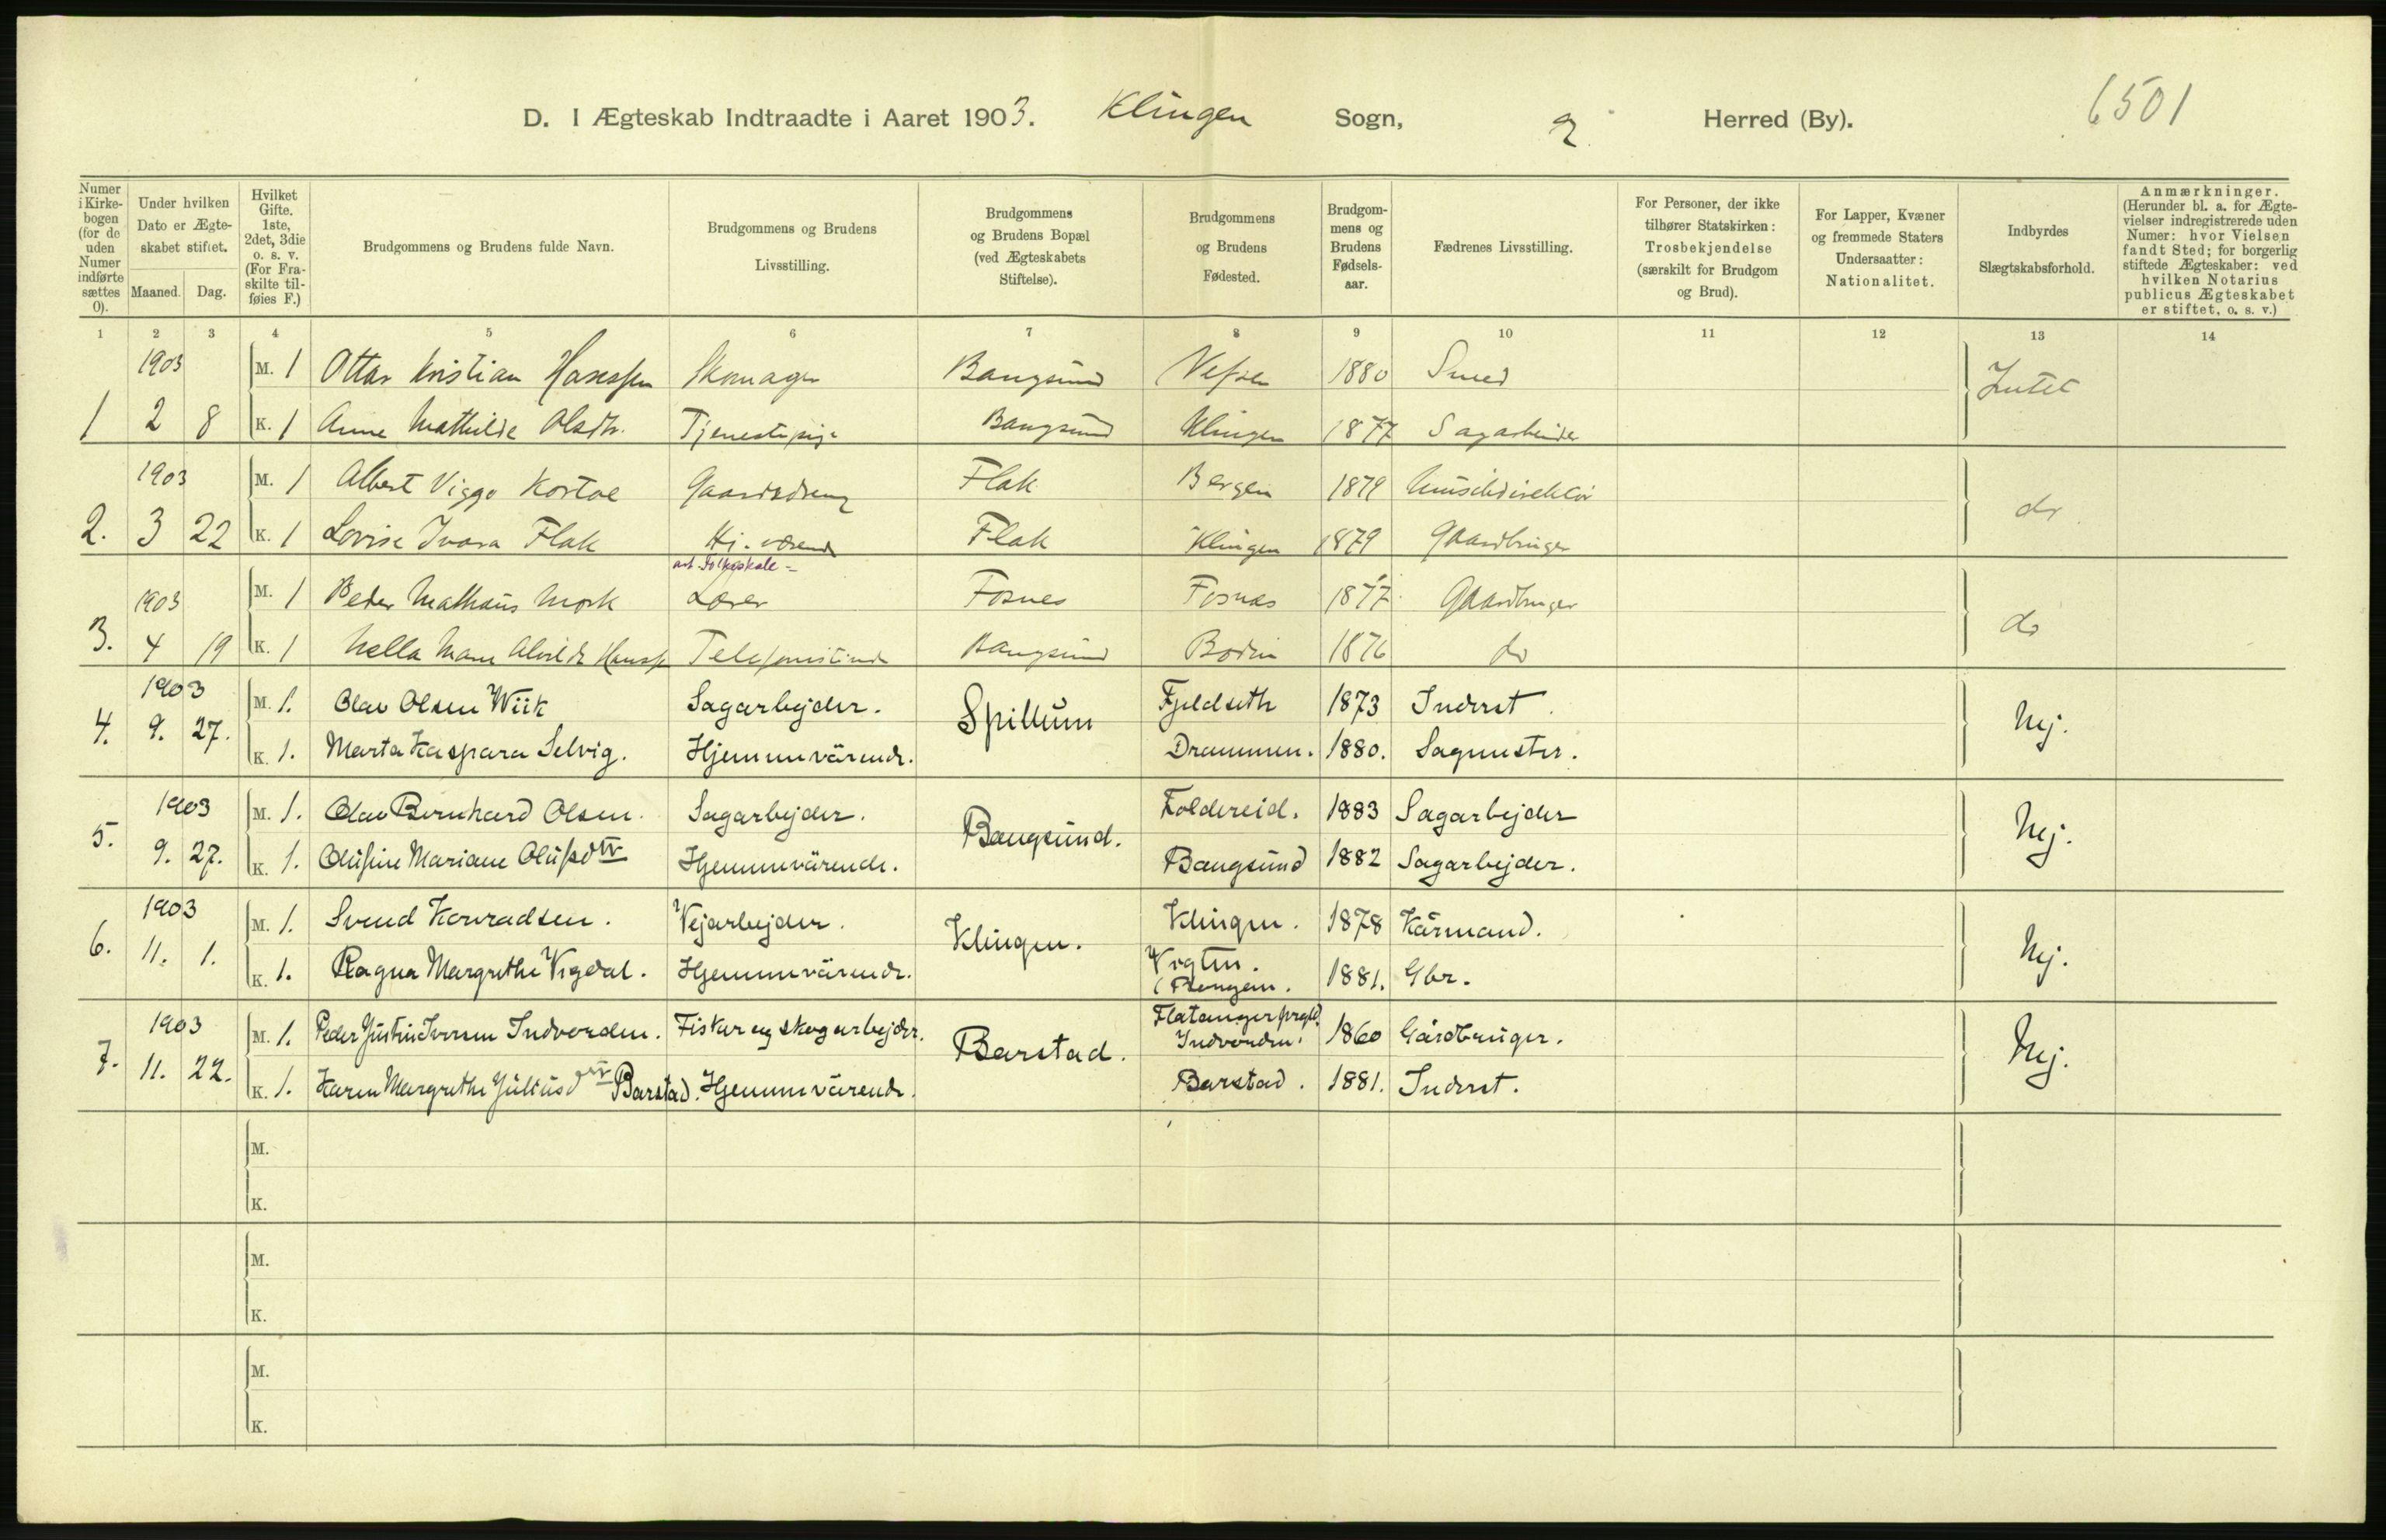 6501
D. I Ægteskab Indtraadte i Aaret 1903. Klingen Sogn, Herred (By).
Numer i Kirkebogen (for de uden Numer indførte sættes 0).
Under hvilken Dato er Ægteskabet stiftet.
Maaned. Dag.
Hvilket Gifte. 1ste, 2det, 3die o. s. v. (For Fraskilte tilføies F.)
Brudgommens og Brudens fulde Navn.
Brudgommens og Brudens Livsstilling.
Brudgommens og Brudens Bopæl (ved Ægteskabets Stiftelse).
Brudgommens og Brudens Fødested.
Brudgommens og Brudens Fødselsaar.
Fædrenes Livsstilling.
For Personer, der ikke tilhører Statskirken: Trosbekjendelse (særskilt for Brudgom og Brud).
For Lapper, Kvæner og fremmede Staters Undersaatter: Nationalitet.
Indbyrdes Slægtskabsforhold.
Anmærkninger. (Herunder bl. a. for Ægtevielser indregistrerede uden Numer: hvor Vielsen fandt Sted; for borgerlig stiftede Ægteskaber: ved hvilken Notarius publicus Ægteskabet er stiftet, o. s. v.)
1 2 3 4 5 6 7 8 9 10 11 12 13 14
1903 M. 1 Ottar Kristian Skomager Bangsund Vefsen 1880 Smed Intet
1 2 8 K. 1 Anne Mathilde Olsdtr. Tjenestepige Bangsund Klingen 1877 Sagarbeider
1903 M. 1 Albert Viggo Gaardsdreng Flak Bergen 1879 do
2. 3 22 K. 1 Lovise Ivara Flak Hj. værende Flak Klingen 1879 Gaardbruger
1903 M. 1 Peder Mathæus Mork Lærer Fosnes Fosnæs 1877 Gaardbruger do
3. 4 19 K. 1 Telefonistinde Bangsund Bodin 1876 do
1903 M. 1. Olav Olsen Wiik Sagarbejder. Spillum Fjeldseth 1873 Inderst. Nej.
4. 9. 27. K. 1. Marta Kaspara Selvig. Hjemmeværende. Drammen. 1880. Sagmester.
1903 M. 1. Olav Bernhard Olsen. Sagarbejder. Bangsund. Foldereid. 1883 Sagarbejder Nej.
5. 9. 27. K. 1. Olufine Mariane Olufsdtr Hjemmeværende. Bangsund 1882 Sagarbejder.
1903 M. 1. Svend Konradsen. Vejarbejder. Klingen. Klingen. 1878 Kårmand. Nej.
6. 11. 1. K. 1. Ragna Margrethe Vigdal. Hjemmeværende. Vigten. 1881. Gbr.
1903 M. 1. Peder Justin Iversen Indvorden. Fisker og skogarbejder. Barstad. Flatanger prgld. Indvorden. 1860 Gårdbruger. Nej.
7. 11. 22. K. 1. Karen Margrethe Juliusdtr Barstad. Hjemmeværende. Barstad. 1881. Inderst.
M.
K.
M.
K.
M.
K.